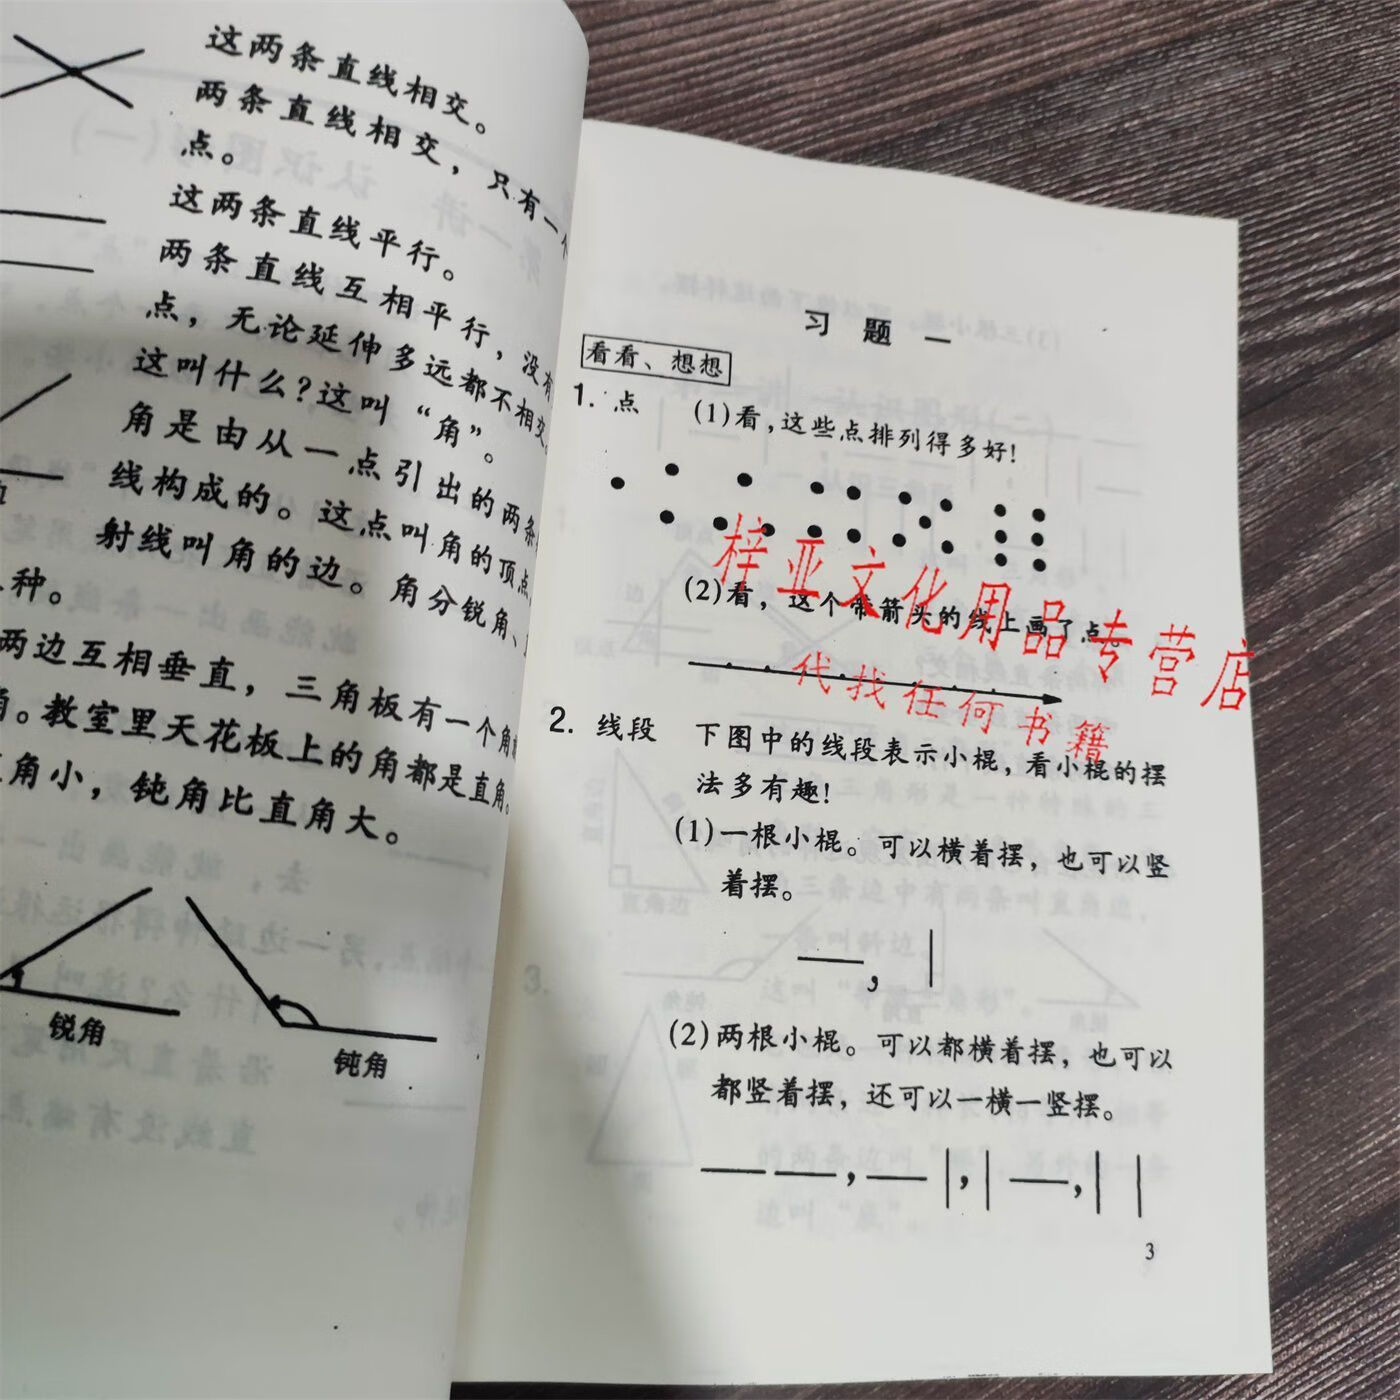 这两条直线相交。
两条直线相交，只有一个
点。
这两条直线平行。
两条直线互相平行，没有
点，无论延伸多远都不相交。
这叫什么?这叫“角”。
角是由从一点引出的两条
线构成的。这点叫角的顶点，
射线叫角的边。角分锐角、
种。
两边互相垂直，三角板有一个角
角。教室里天花板上的角都是直角。
角小，钝角比直角大。
锐角
钝角
习题一
看看、想想
1. 点 (1)看,这些点排列得多好!
(2)看，这个带箭头的线上画了点。
2. 线段 下图中的线段表示小棍，看小棍的摆
法多有趣!
(1)一根小棍。可以横着摆，也可以竖
着摆。
(2)两根小棍。可以都横着摆，也可以
都竖着摆，还可以一横一竖摆。
3
梓亚文化用品专营店
代找任何书籍